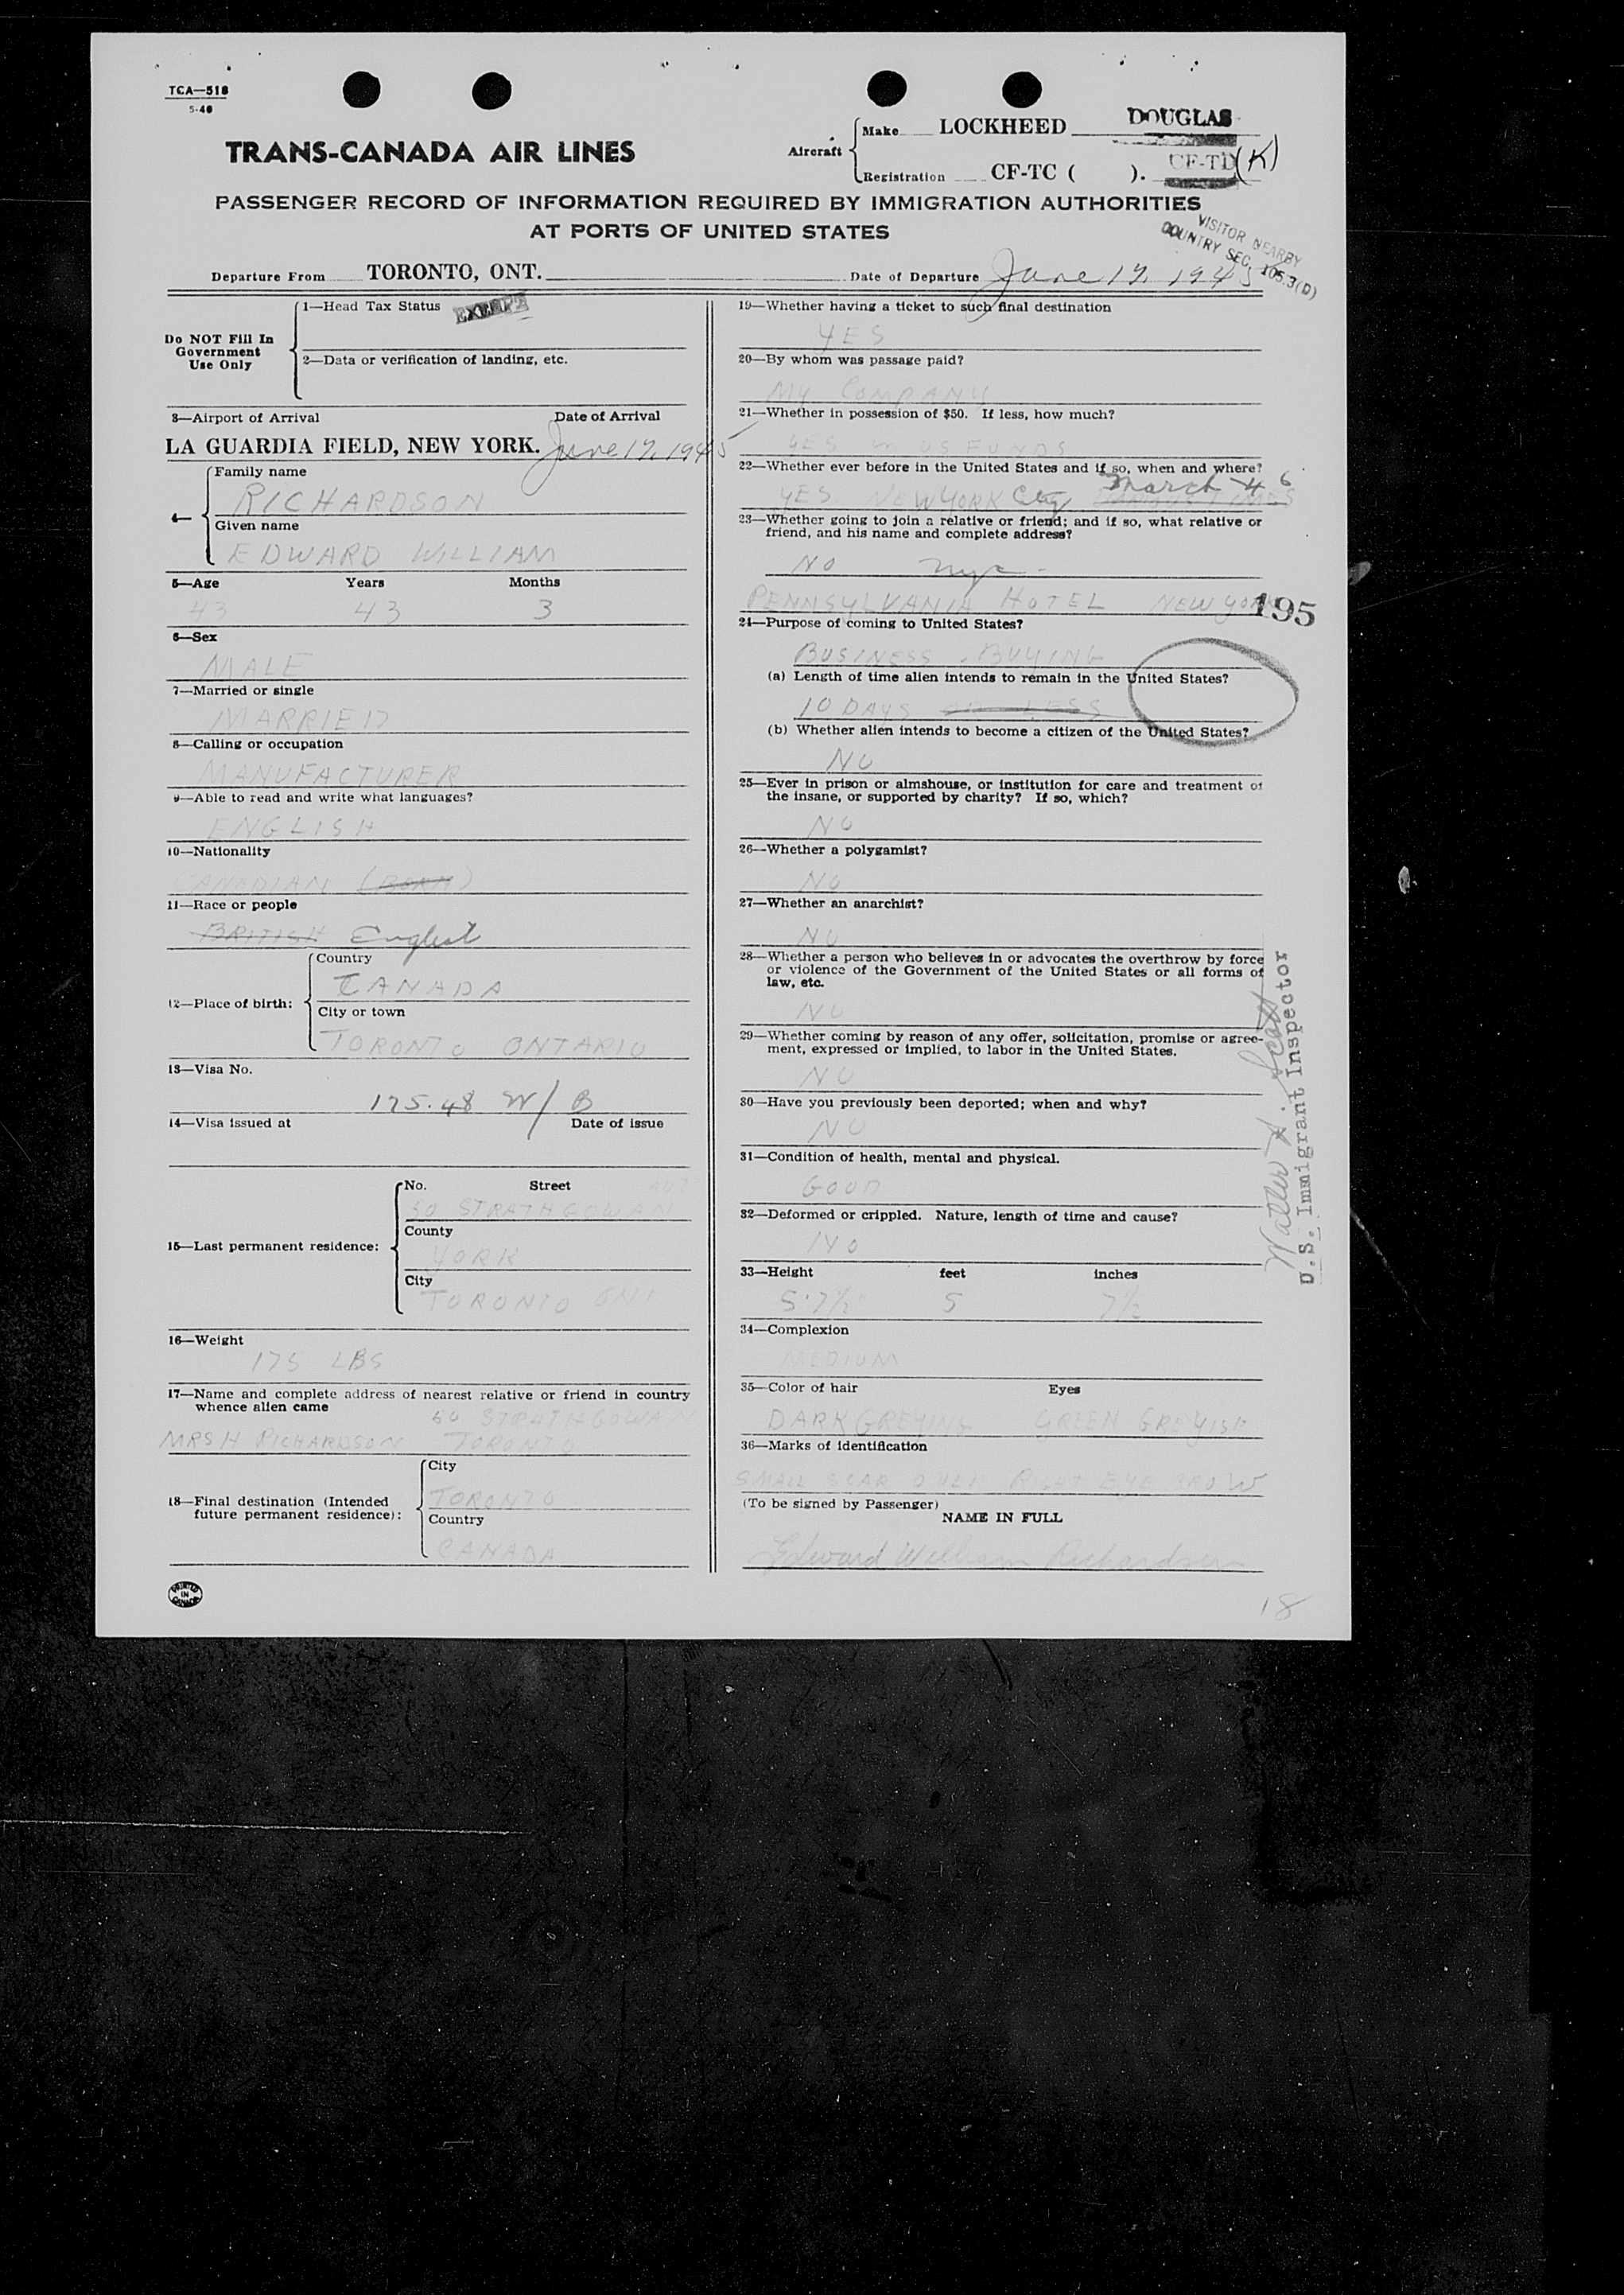 TCA—518
5-46
TRANS-CANADA AIR LINES
Aircraft
Make LOCKHEED DOUGLAS
Registration CF-TC ( ). CF-TD (K)
PASSENGER RECORD OF INFORMATION REQUIRED BY IMMIGRATION AUTHORITIES
AT PORTS OF UNITED STATES
VISITOR NEARBY
COUNTRY SEC. 105.3(D)
Departure From TORONTO, ONT. Date of Departure June 17, 1945
Do NOT Fill In
Government
Use Only
1—Head Tax Status EXEMPT
2—Data or verification of landing, etc.
3—Airport of Arrival Date of Arrival
LA GUARDIA FIELD, NEW YORK. June 17, 1945
4—
Family name
RICHARDSON
Given name
EDWARD WILLIAM
5—Age Years Months
43 43 3
6—Sex
MALE
7—Married or single
MARRIED
8—Calling or occupation
MANUFACTURER
9—Able to read and write what languages?
ENGLISH
10—Nationality
CANADIAN (BORN)
11—Race or people
BRITISH English
12—Place of birth:
Country
CANADA
City or town
TORONTO ONTARIO
13—Visa No.
175.48 W/B
14—Visa issued at Date of issue
15—Last permanent residence:
No. Street
50 STRATHGOWAN
County
YORK
City
TORONTO ONT
16—Weight
175 LBS
17—Name and complete address of nearest relative or friend in country
whence alien came
50 STRATHGOWAN
MRS H RICHARDSON TORONTO
18—Final destination (Intended
future permanent residence):
City
TORONTO
Country
CANADA
PRINTED
IN
CANADA
19—Whether having a ticket to such final destination
YES
20—By whom was passage paid?
MY COMPANY
21—Whether in possession of $50. If less, how much?
YES IN US FUNDS
22—Whether ever before in the United States and if so, when and where?
March 46
YES. NEW YORK City
23—Whether going to join a relative or friend; and if so, what relative or
friend, and his name and complete address?
NO nyc-
PENNSYLVANIA HOTEL NEW YORK
195
24—Purpose of coming to United States?
BUSINESS - BUYING
(a) Length of time alien intends to remain in the United States?
10 DAYS OR LESS
(b) Whether alien intends to become a citizen of the United States?
NO
25—Ever in prison or almshouse, or institution for care and treatment of
the insane, or supported by charity? If so, which?
NO
26—Whether a polygamist?
NO
27—Whether an anarchist?
NO
28—Whether a person who believes in or advocates the overthrow by force
or violence of the Government of the United States or all forms of
law, etc.
NO
29—Whether coming by reason of any offer, solicitation, promise or agree-
ment, expressed or implied, to labor in the United States.
NO
30—Have you previously been deported; when and why?
NO
31—Condition of health, mental and physical.
GOOD
32—Deformed or crippled. Nature, length of time and cause?
NO
33—Height feet inches
5'7½" 5 7½
34—Complexion
MEDIUM
35—Color of hair Eyes
DARK GREYING GREEN GREYISH
36—Marks of identification
SMALL SCAR OVER RIGHT EYE BROW
(To be signed by Passenger)
NAME IN FULL
Edward William Richardson
Walter A. Scott
U.S. Immigrant Inspector
18